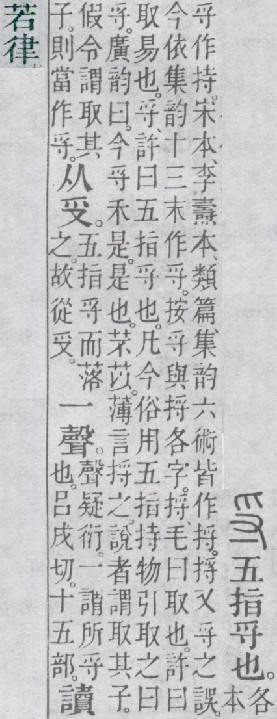 五指寽也。各本
寽作持。宋本、李燾本、類篇、集韵六術皆作捋。捋又寽之誤。
今依集韵十三末作寽。按寽與捋各字。捋、毛曰取也。許曰
取易也。寽、許曰五指寽也。凡今俗用五指持物引取之曰
寽。廣韵曰。今寽禾是。是也。芣苢。薄言捋之。說者謂取其子。
假令謂取其子。則當作寽。从𠬪。五指寽而落之。故從𠬪。一聲。聲疑衍。一謂所寽也。呂戌切。十五部。讀
若律